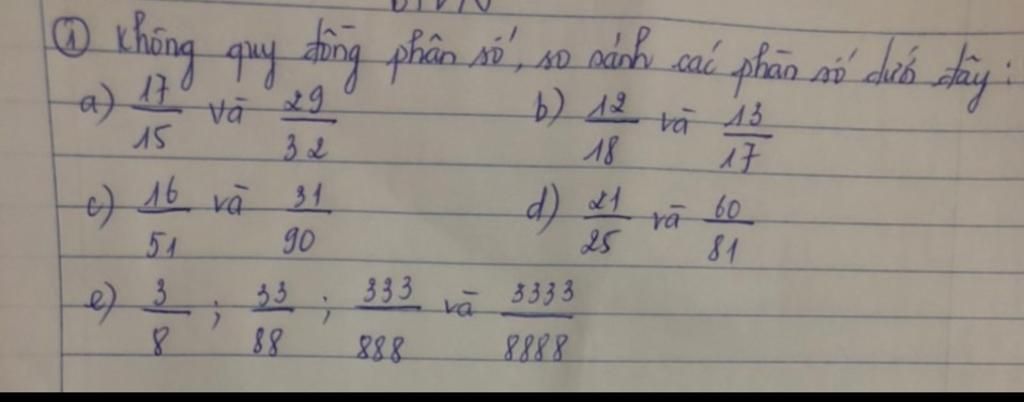 ① Không quy đồng phân số, so sánh các phân số dưới đây:
a) 17/15 và 29/32 b) 12/18 và 13/17
c) 16/51 và 31/90 d) 21/25 và 60/81
e) 3/8 ; 33/88 ; 333/888 và 3333/8888